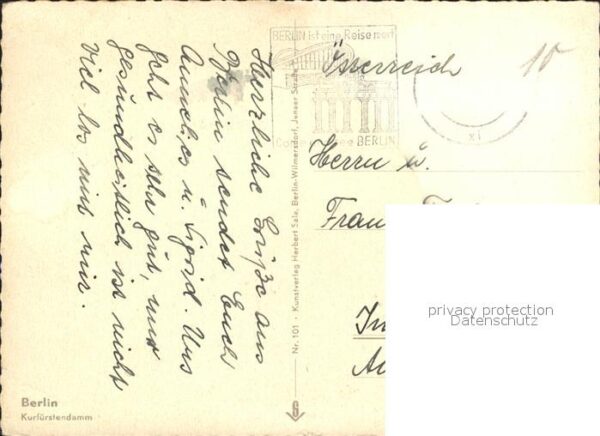 Herzliche Grüße aus
Berlin sendet Euch
Annelies u. Sigrid. Uns
geht es sehr gut, nur
gesundheitlich ist nicht
viel los mit mir.
BERLIN ist eine Reise wert
BERLIN
Österreich
10
XI
Herrn u.
Frau
In
privacy protection
Datenschutz
Nr. 101 · Kunstverlag Herbert Sala, Berlin-Wilmersdorf, Jenaer Straße
Berlin
Kurfürstendamm